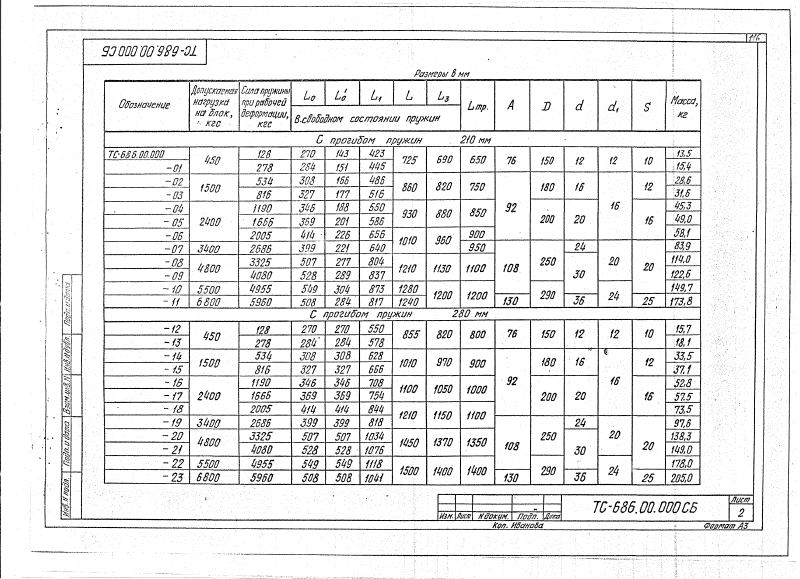 116
ТС-686.00.000СБ
Размеры в мм
Обозначение Допускаемая нагрузка на блок, кгс Сила пружины при рабочей деформации, кгс L₀ L₀' L₁ L L₃ Lпр. A D d d₁ S Масса, кг
В свободном состоянии пружин
С прогибом пружин 210 мм
ТС-686.00.000 450 128 270 143 423 725 690 650 76 150 12 12 10 13,5
-01 278 284 151 445 15,4
-02 1500 534 308 166 486 860 820 750 92 180 16 16 12 28,6
-03 816 327 177 516 31,6
-04 2400 1190 346 188 550 930 880 850 200 20 16 45,3
-05 1666 369 201 586 49,0
-06 2005 414 226 656 1010 960 900 58,1
-07 3400 2686 399 221 640 950 108 250 24 20 20 83,9
-08 4800 3325 507 277 804 1210 1130 1100 30 114,0
-09 4080 528 289 837 122,6
-10 5500 4955 549 304 873 1280 1200 1200 290 24 149,7
-11 6800 5960 508 284 817 1240 130 36 25 173,8
С прогибом пружин 280 мм
-12 450 128 270 270 550 855 820 800 76 150 12 12 10 15,7
-13 278 284 284 578 18,1
-14 1500 534 308 308 628 1010 970 900 92 180 16 16 12 33,5
-15 816 327 327 666 37,1
-16 2400 1190 346 346 708 1100 1050 1000 200 20 16 52,8
-17 1666 369 369 754 57,5
-18 2005 414 414 844 1210 1150 1100 73,5
-19 3400 2686 399 399 818 108 250 24 20 20 97,6
-20 4800 3325 507 507 1034 1450 1370 1350 30 138,3
-21 4080 528 528 1076 149,0
-22 5500 4955 549 549 1118 1500 1400 1400 290 24 178,0
-23 6800 5960 508 508 1041 130 36 25 205,0
Подп. и дата
Взам. инв. № Инв. № дубл.
Подп. и дата
Инв. № подл.
Изм. Лист № докум. Подп. Дата
ТС-686.00.000СБ
Лист
2
Коп. Иванова
Формат А3